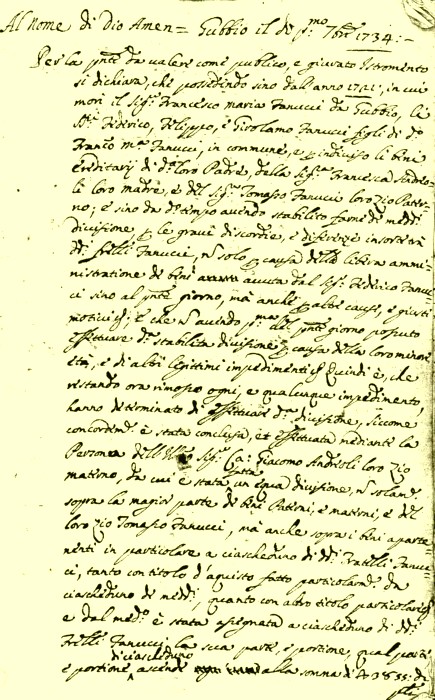 Al Nome di Dio Amen = Gubbio il dì p.mo 7bre 1734 :-
Per la pnte da valere come publico, e giurato Istromento
si dichiara, che possedendo sino dall'anno 1721, in cui
morì il Sig.r Francesco Maria Fanucci da Gubbio, li
SS.ri Federico, Felippo, e Girolamo Fanucci figli di d.o
Franc.o M.a Fanucci, in commune, e p indiviso li beni
ereditarij di d.o loro Padre, della Sig.ra Francesca Andreo-
li loro madre, e del Sig.r Tomaso Fanucci loro zio Pater-
no; e sino da d.o tempo avendo stabilito farne di med.mi
divisione, p le gravi discordie, e differenze insorte tra
dd. frelli Fanucci, n solo p causa della libera ammi-
nistrazione de beni avuta dal Sig.r Federico Fanuc-
ci sino al pnte giorno, mà anche p altre cause, e giusti
motivi; e che n avendo p.ma del pnte giorno possuto
effettuare d.a stabilita divisione p causa della loro minore
età, e di altri legitimi impedimenti Quindi è, che
restando ora rimosso ogni, e qualunque impedimento,
hanno determinato di effettuare d.a divisione, siccome
concordem.e è stata conclusa, et effettuata mediante la
Persona dell' Sig.r Giacomo Andreoli loro zio
materno, da cui è stata fatta un equa divisione, n solam.e
sopra la magior parte de beni Paterni, e materni, e del
loro zio Tomasso Fanucci, mà anche sopra i beni aparte-
nenti in particolare a ciascheduno di dd. Fratelli Fanuc-
ci, tanto con titolo d'aquisto fatto particolarm.e da
ciascheduno de med.mi, quanto con altro titolo particolare
e dal med.o è stata assegnata a ciascheduno di dd.
Frelli Fanucci la sua parte, e portione, qual parte,
e portione di ciascheduno ascende alla somma di 1835: di